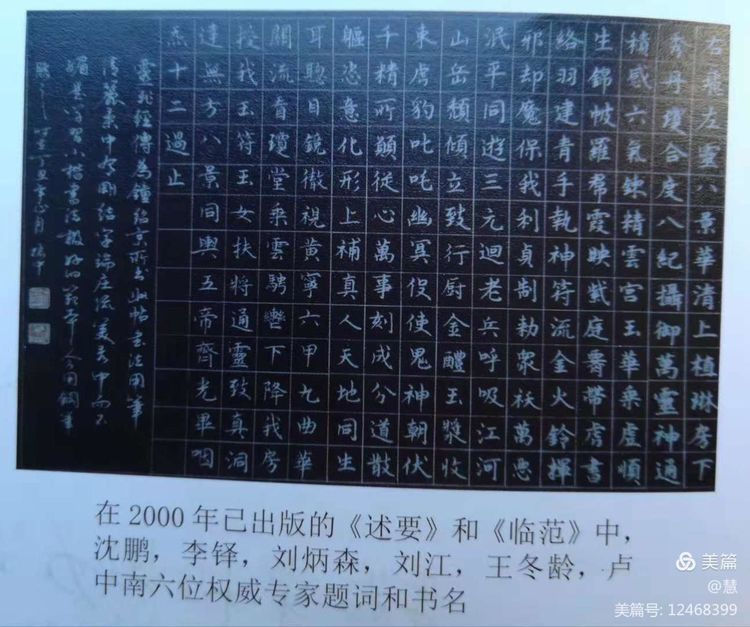 右飛左靈八景華清上植琳房下
秀丹瓊合度八紀攝御萬靈神通
積感六氣錬精雲宮玉華乘虛順
生錦帔羅帬霞映紫庭腎帶虎書
絡羽建青手執神符流金火鈴揮
邪却魔保我利貞制勅衆祅萬惡
泯平同遊三元迴老兵呼吸江河
山岳頹傾立致行厨金醴玉漿收
東虎豹叱吒幽冥役使鬼神朝伏
千精所願從心萬事刻成分道散
軀恣意化形上補真人天地同生
耳聰目鏡徹視黃寧六甲九曲華
關流看瓊堂乘雲騁轡下降我房
授我玉符玉女扶將通靈致真洞
達無方八景同輿五帝齊光畢咽
炁十二過止
靈飛經傳為鍾紹京所書此帖書法用筆
清麗柔中有剛結字端庄優美美中而不
媚是学習小楷書法最好的範本今用鋼筆
臨之 丁丑年正月
在2000年已出版的《述要》和《临范》中，
沈鹏，李铎，刘炳森，刘江，王冬龄，卢
中南六位权威专家题词和书名
美篇
@慧
美篇号: 12468399